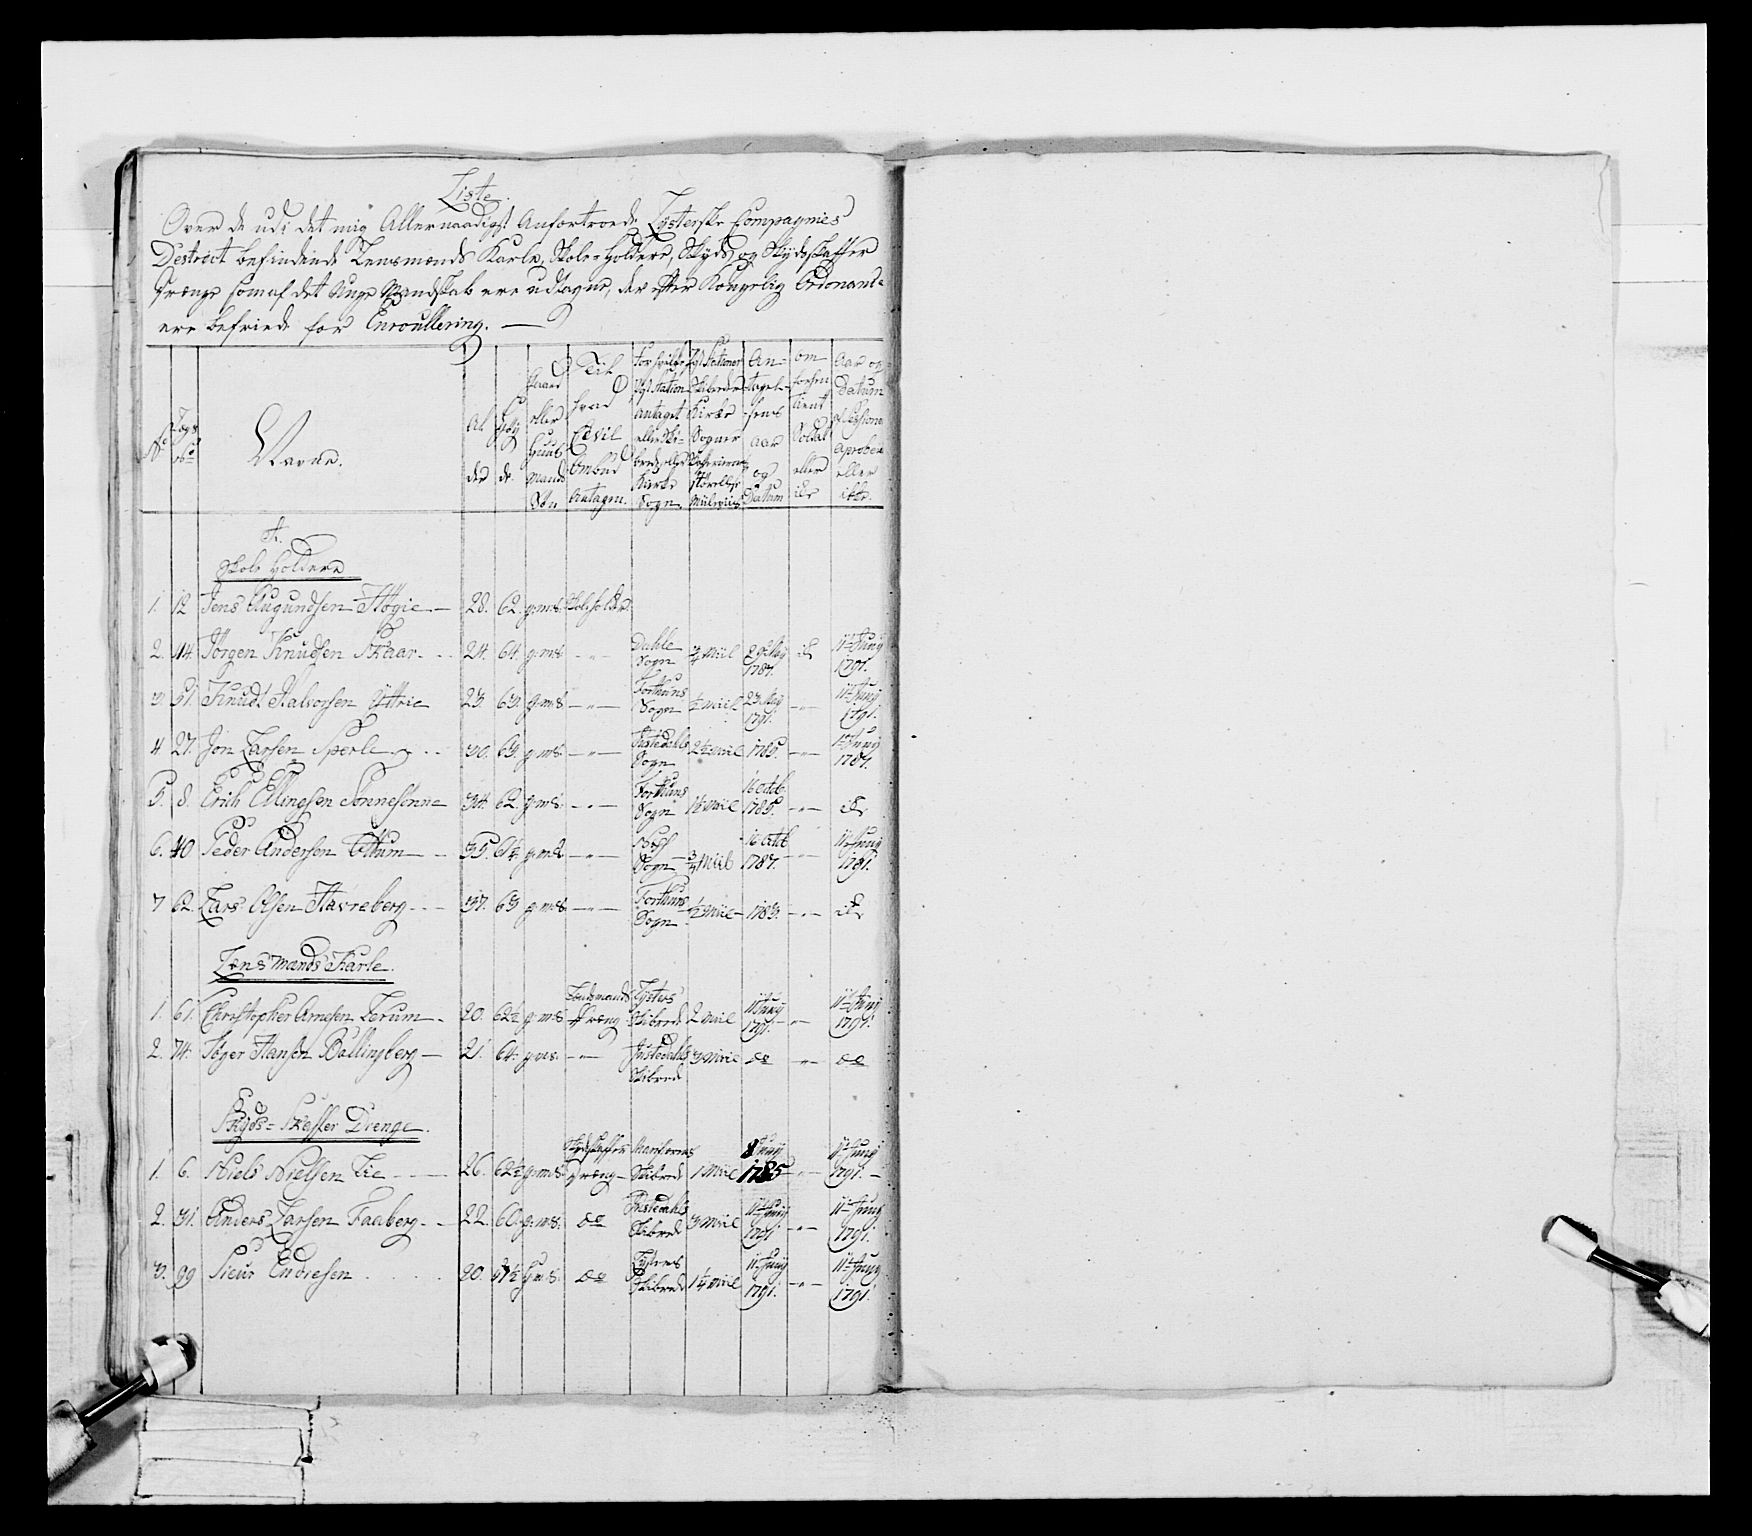 Liste.
Over de udi det mig Allernaadigst Anfortroede Lysterske Compagnies
District befindende Lensmænds Karle, Skole-Holdere, Skyds og Skydsskaffer
Drænge som af det Unge Mandskab ere udtagne, der efter Kongelig Ordonance
ere befriede for Enroullering.
No
Navne.
Al
der
Høy
de
Gaard
eller
Huus
mands
Søn
Til
hvad
Civil
Ombud
Antagen.
An-
tagel-
sens
Aar
og
Datum
om
forhen
tient
Soldat
eller
ikke
Aar og
Datum
Sessions
Aproberet
eller
ikke.
A.
Skole Holdere
1. 12 Jens Augundsen Høgie 28. 62. g:m:s: Skoleholder
2. 114. Jørgen Knudsen Skaar 24. 64. g:m:s - " - Dahle Sogn 3/4 Miil 29 May 1787. ike 11te Juny 1791.
3. 51. Knud Halvorsen Yttrie 23. 63. g:m:s - " - Forthuns Sogn 1/2 Miil 23 May 1791. - " - 11te Juny 1791.
4 27. Jon Larsen Sperle 30. 63. g:m:s - " - Justedahls Sogn 2 1/2 Miil 1785. - " - Juny 1787.
5. 8. Erich Ellingsen Sønnesønne 34. 62. g:m:s - " - Forthuns Sogn 1 1/2 Miil 16 Octb. 1785. - " - ike
6. 40 Peder Andersen Ottum 35. 61 1/2 g:m:s - " - Sogn 3/4 Miil 16 Octb 1787. - " - 11te Juny 1791.
7 62. Lars Olsen Havreberg 37. 63 g:m:s - " - Forthuns Sogn 1/2 Miil 1783. - " - ike
Lensmands Karle.
1. 61. Christopher Arnesen Lerum 20. 62 1/2 g:m:s Lensmands Dræng Lysters Skibrede 2 Miil 11te Juny 1791. - " - 11te Juny 1791.
2. 74. Hansen Ballingberg 21. 64. g:m:s. - " - Justedahls Skibrede 3 Miil do - " - do
Skyds-Skaffer Drenge.
1. 6. Niels Nielsen Lie 26. 62 1/2 g:m:s: Skydsskaffer Dræng Marifiæres Skibrede 1 Miil 8 Juny 1785 - " - 11te Juny 1791.
2. 31. Anders Larsen Faaberg 22. 60. g:m:s. do Justedahls Skibrede 3 Miil 11te Juny 1791 - " - 11te Juny 1791.
3. 99 Sieur Endresen 20. 61 1/2 g:m:s. do Lysters Skibrede 1 1/4 Miil 11te Juny 1791. - " - 11te Juny 1791.